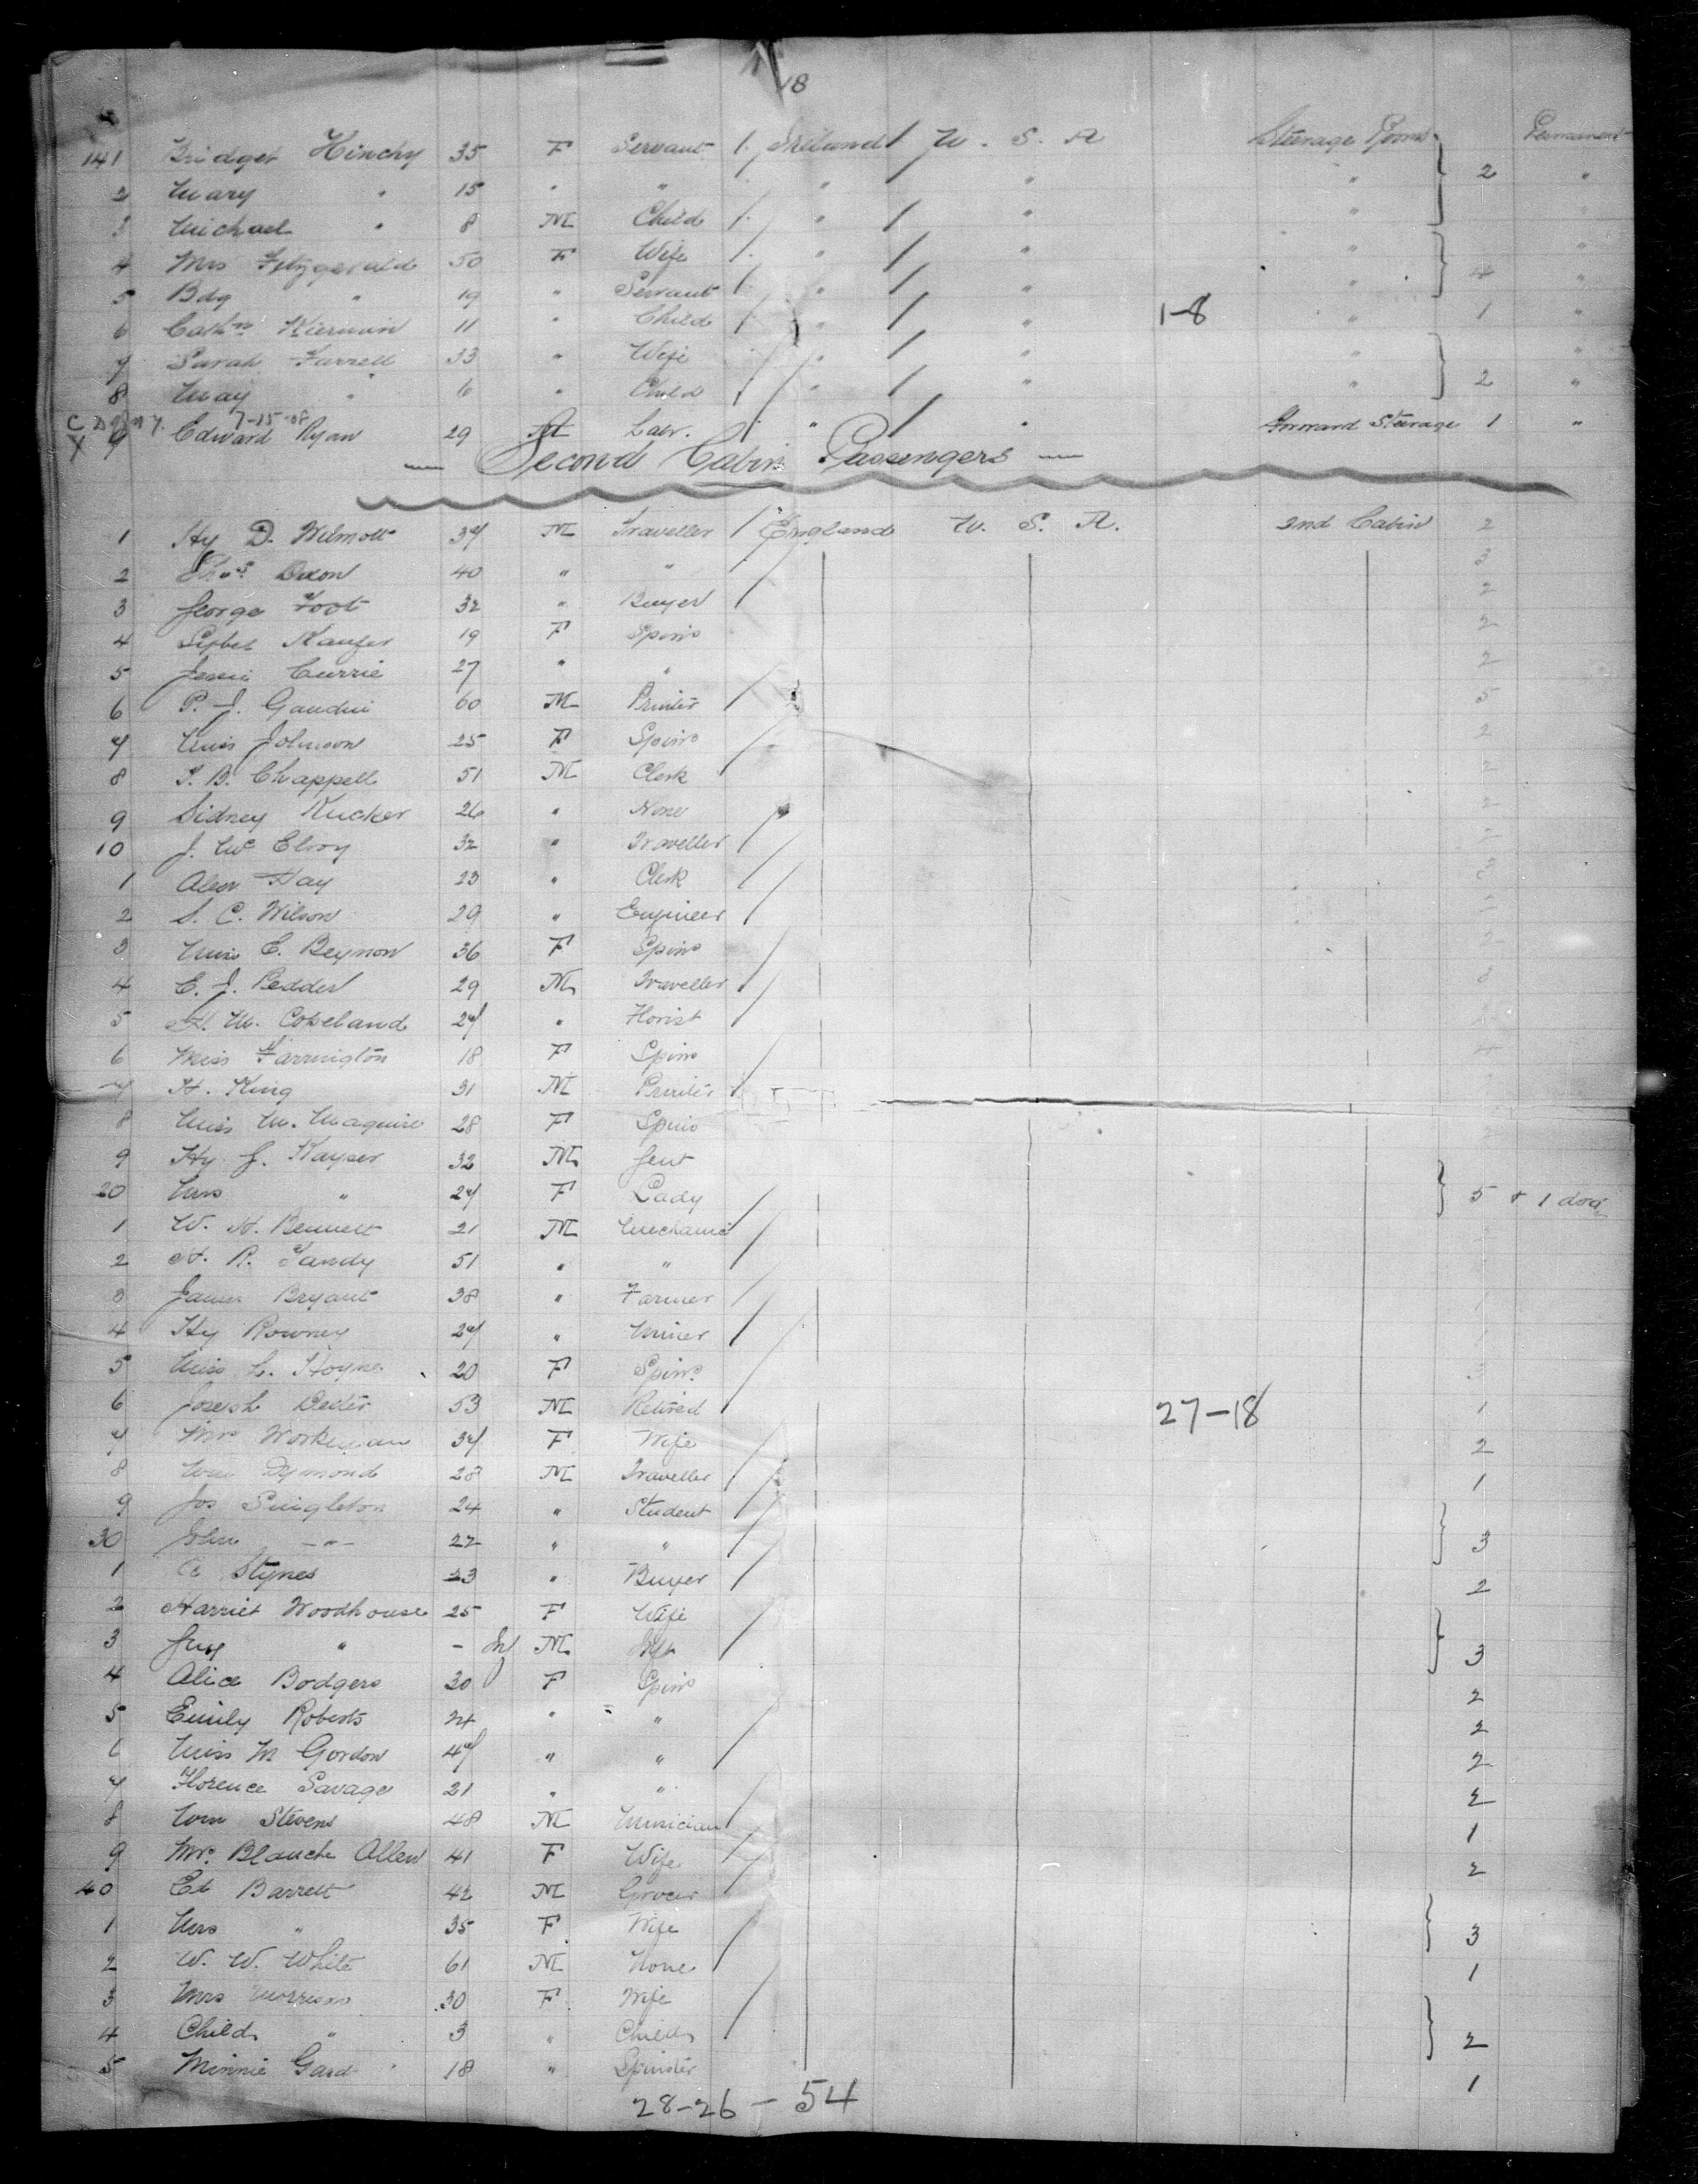 18
141 Bridget Hinchy 35 F Servant Ireland U. S. A Steerage Rooms Permanent
2 Mary " 15 " " " " " 2 "
3 Michael " 8 M Child " " "
4 Mrs Fitzgerald 50 F Wife " " " "
5 Bdg " 19 " Servant " " " 4 "
6 Cathn Kiernan 11 " Child " " 1-8 " 1 "
7 Sarah Farrell 33 " Wife " " " "
8 May " 6 " Child " " " 2 "
C D 7-15-08
X 9 Edward Ryan 29 M Labr. " " Forward Steerage 1 "
— Second Cabin Passengers —
1 Hy D. Wilmott 37 M Traveller England U. S. A. 2nd Cabin 2
2 Thos. Dixon 40 " " 3
3 George Foot 32 " Buyer 2
4 19 F Spinr 2
5 Jessie Currie 27 " " 2
6 P. J. Gaudin 60 M Printer 5
7 Miss Johnson 25 F Spinr 2
8 T. B. Chappell 51 M Clerk 2
9 Sidney Rucker 26 " None 2
10 J. Mc Elroy 32 " Traveller 2
1 Alex Hay 23 " Clerk 3
2 S. C. Wilson 29 " Engineer 2
3 Miss E. Beynon 36 F Spinr 2
4 C. J. Pedder 29 M Traveller 8
5 H. M. Copeland 27 " Florist
6 Miss Farrington 18 F Spinr
7 H. King 31 M Printer
8 Miss M. Maguire 28 F Spinr 2
9 Hy J. Kayser 32 M Gent
20 Mrs " 27 F Lady 5 + 1 dog
1 W. H. Bennett 21 M Mechanic
2 H. R. Tandy 51 " "
3 James Bryant 38 " Farmer
4 Hy Rowney 27 " Miner
5 Miss L. Hoyne 20 F Spinr. 3
6 Joseph Deeter 53 M Retired 27-18 1
7 Mrs Workman 37 F Wife 2
8 Wm Dymond 28 M Traveller 1
9 Jos Singleton 24 " Student
30 John —"— 22 " " 3
1 C Stynes 23 " Buyer 2
2 Harriet Woodhouse 25 F Wife
3 Guy " - Inf M Inft 3
4 Alice Bodgers 30 F Spinr 2
5 Emily Roberts 24 " " 2
6 Miss M Gordon 47 " " 2
7 Florence Savage 21 " " 2
8 Wm Stevens 48 M Musician 1
9 Mrs. Blanche Allen 41 F Wife 2
40 Ed Barrett 42 M Grocer
1 Mrs " 35 F Wife 3
2 W. W. White 61 M None 1
3 Mrs Morrison 30 F Wife
4 Child " 3 " Child 2
5 Minnie Gard 18 " Spinster 1
28-26-54